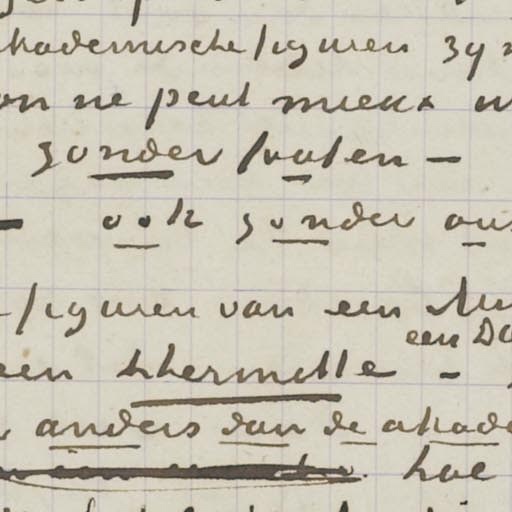 akademische figuren zyn
on ne peut mieux
zonder fouten —
— ook zonder
figuren van een
een Da
een Lhermitte –
anders dan de akade
hoe